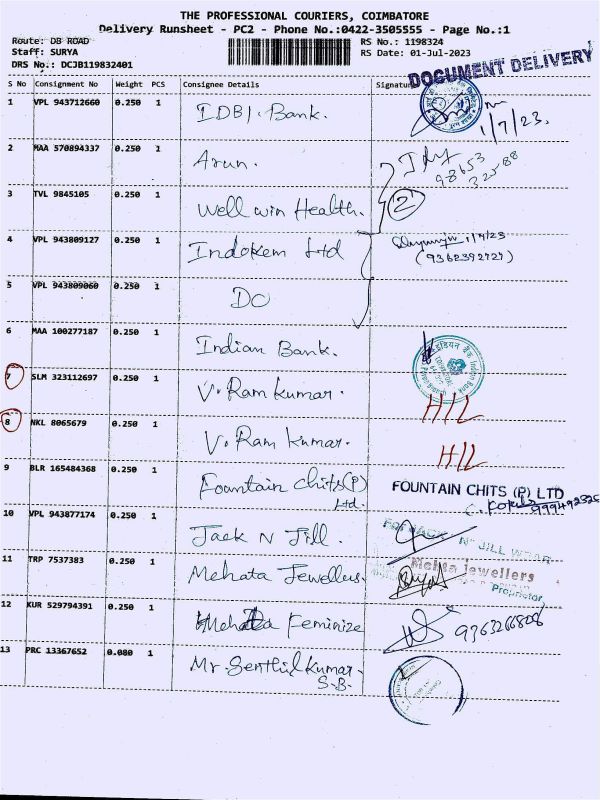 THE PROFESSIONAL COURIERS, COIMBATORE
Delivery Runsheet - PC2 - Phone No.:0422-3505555 - Page No.:1
Route: DB ROAD
RS No.: 1198324
Staff: SURYA
RS Date: 01-Jul-2023
DRS No.: DCJB119832401
DOCUMENT DELIVERY
S No Consignment No Weight PCS Consignee Details Signature
1 VPL 943712660 0.250 1 IDBI. Bank.
1/7/23.
2 MAA 570894337 0.250 1 Arun.
98653
32588
3 TVL 9845105 0.250 1 Well win Health. 2
4 VPL 943809127 0.250 1 Indokem Ltd 1/7/23
(9362392727)
5 VPL 943809060 0.250 1 DO
6 MAA 100277187 0.250 1 Indian Bank.
इंडियन बैंक Indian Bank
7 SLM 323112697 0.250 1 V. Ram Kumar. H/L
8 NKL 8065679 0.250 1 V. Ram Kumar. H/L
9 BLR 165484368 0.250 1 Fountain Chits(P) Ltd.
FOUNTAIN CHITS (P) LTD
10 VPL 943877174 0.250 1 Jack N Jill.
For JACK N' JILL WEAR
11 TRP 7537383 0.250 1 Mehata Jewellers.
Mehta Jewellers
Proprietor
12 KUR 529794391 0.250 1 Mehata Feminize 9363266808
13 PRC 13367652 0.080 1 Mr Senthil Kumar.
S.B.